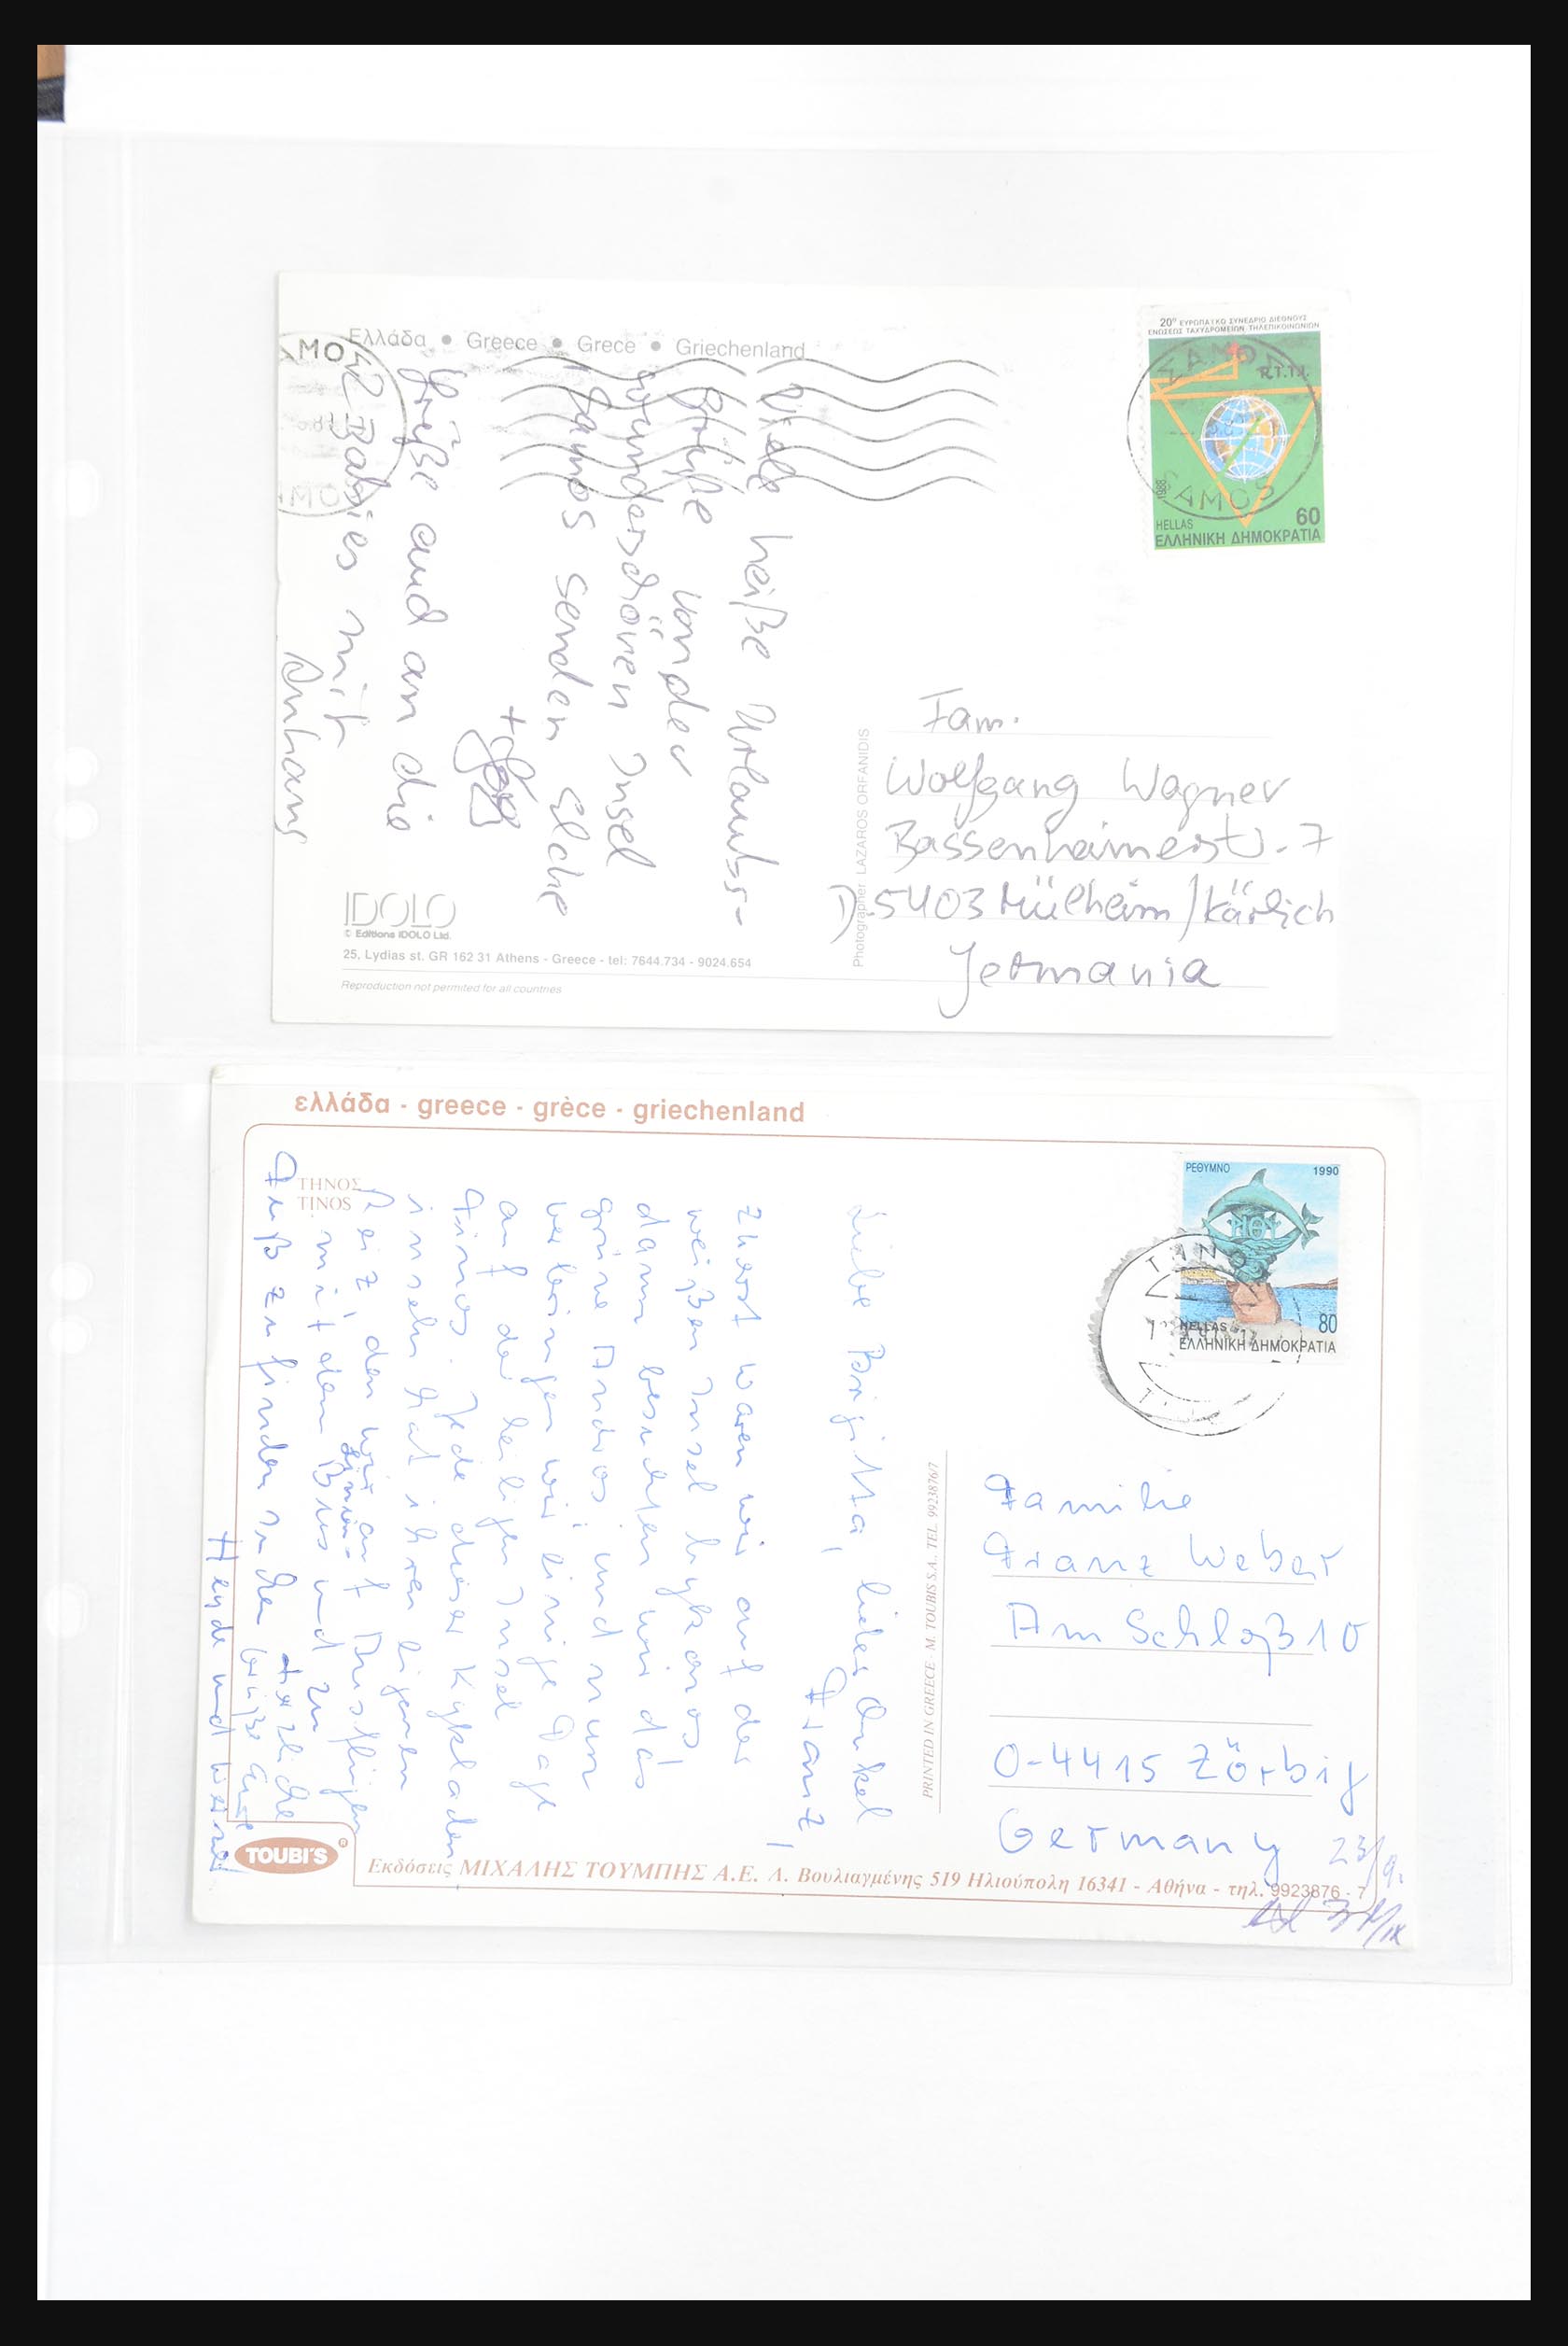 Ελλάδα • Greece • Grece • Griechenland
20º ΕΥΡΩΠΑΪΚΟ ΣΥΝΕΔΡΙΟ ΔΙΕΘΝΟΥΣ
ΕΝΩΣΕΩΣ ΤΑΧΥΔΡΟΜΕΙΩΝ ΤΗΛΕΠΙΚΟΙΝΩΝΙΩΝ
P.T.T.I.
1988
60
HELLAS
ΕΛΛΗΝΙΚΗ ΔΗΜΟΚΡΑΤΙΑ
ΣΑΜΟΣ
SAMOS
Viele heiße Urlaubs-
Grüße von der
wunderschönen Insel
Samos senden
+
Grüße auch an die
2 Babies mit
Anhang
Fam.
Wolfgang Wagner
Bassenheimerstr. 7
D-5403 Mülheim/Kärlich
Jermania
Photographer LAZAROS ORFANIDIS
IDOLO
© Editions IDOLO Ltd.
25, Lydias st. GR 162 31 Athens - Greece - tel: 7644.734 - 9024.654
Reproduction not permited for all countries
ελλάδα - greece - grèce - griechenland
ΤΗΝΟΣ
TINOS
ΡΕΘΥΜΝΟ 1990
80
HELLAS
ΕΛΛΗΝΙΚΗ ΔΗΜΟΚΡΑΤΙΑ
Liebe Brigitta, lieber Onkel
Franz,
zuerst waren wir auf der
weißen Insel Mykonos
dann besuchten wir das
grüne Andros und nun
verbringen wir einige Tage
auf der heiligen Insel
Tinos. Jede dieser Kykladen
inseln hat ihren eigenen
Reiz, den wir auf Ausflügen
mit dem Bus und zu
Fuß zu finden suchen
Herzliche
Grüße Eure
Heyde und Werner
PRINTED IN GREECE - M. TOUBIS S.A., TEL. 9923876/7
Familie
Franz Weber
Am Schloß 10
O-4415 Zörbig
Germany
23/9.
TOUBI'S ®
Εκδόσεις ΜΙΧΑΛΗΣ ΤΟΥΜΠΗΣ Α.Ε. Λ. Βουλιαγμένης 519 Ηλιούπολη 16341 - Αθήνα - τηλ. 9923876 - 7